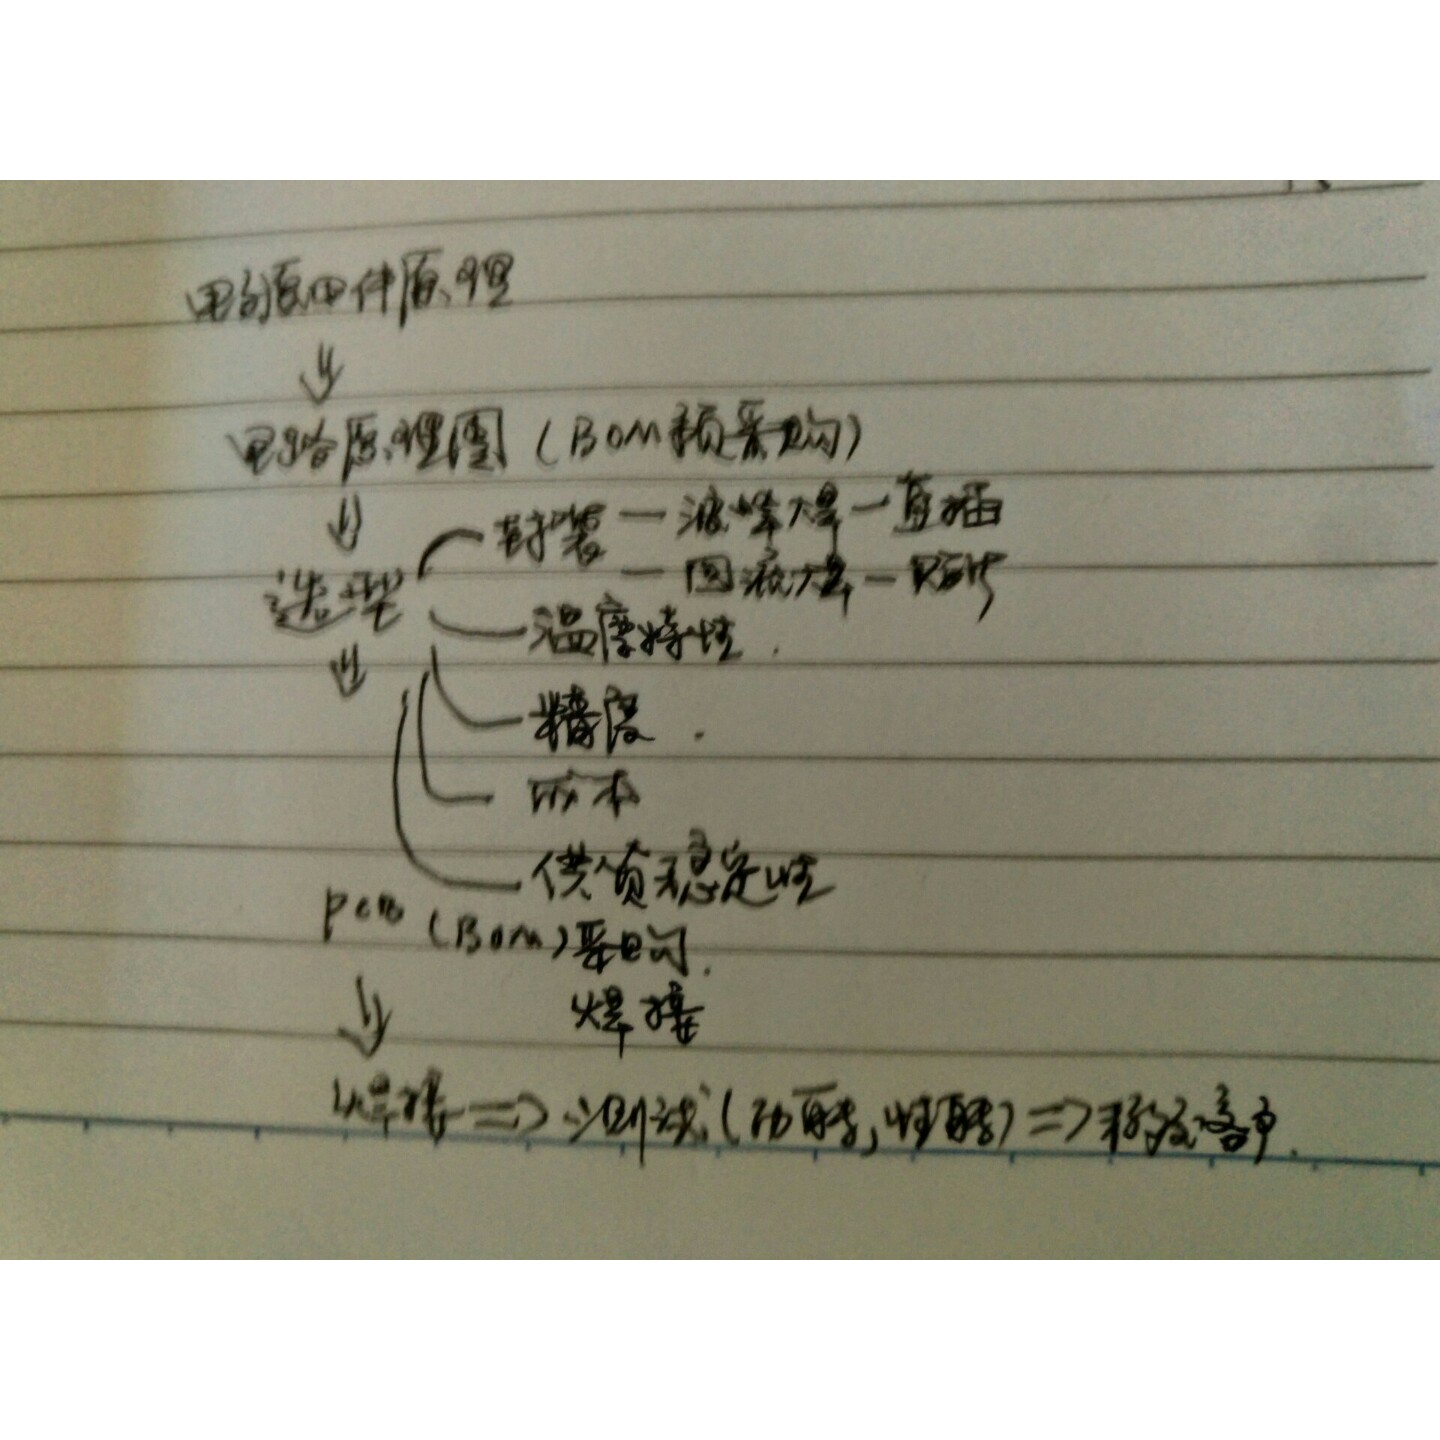 电源元件原理
电路原理图(BOM预采购)
封装 — 波峰焊 — 直插
选型
— 回流焊 — 贴片
温度特性.
精度.
成本
供货稳定性
PCB (BOM)采购.
焊接
焊接 => 测试(功能,性能) => 移交客户.